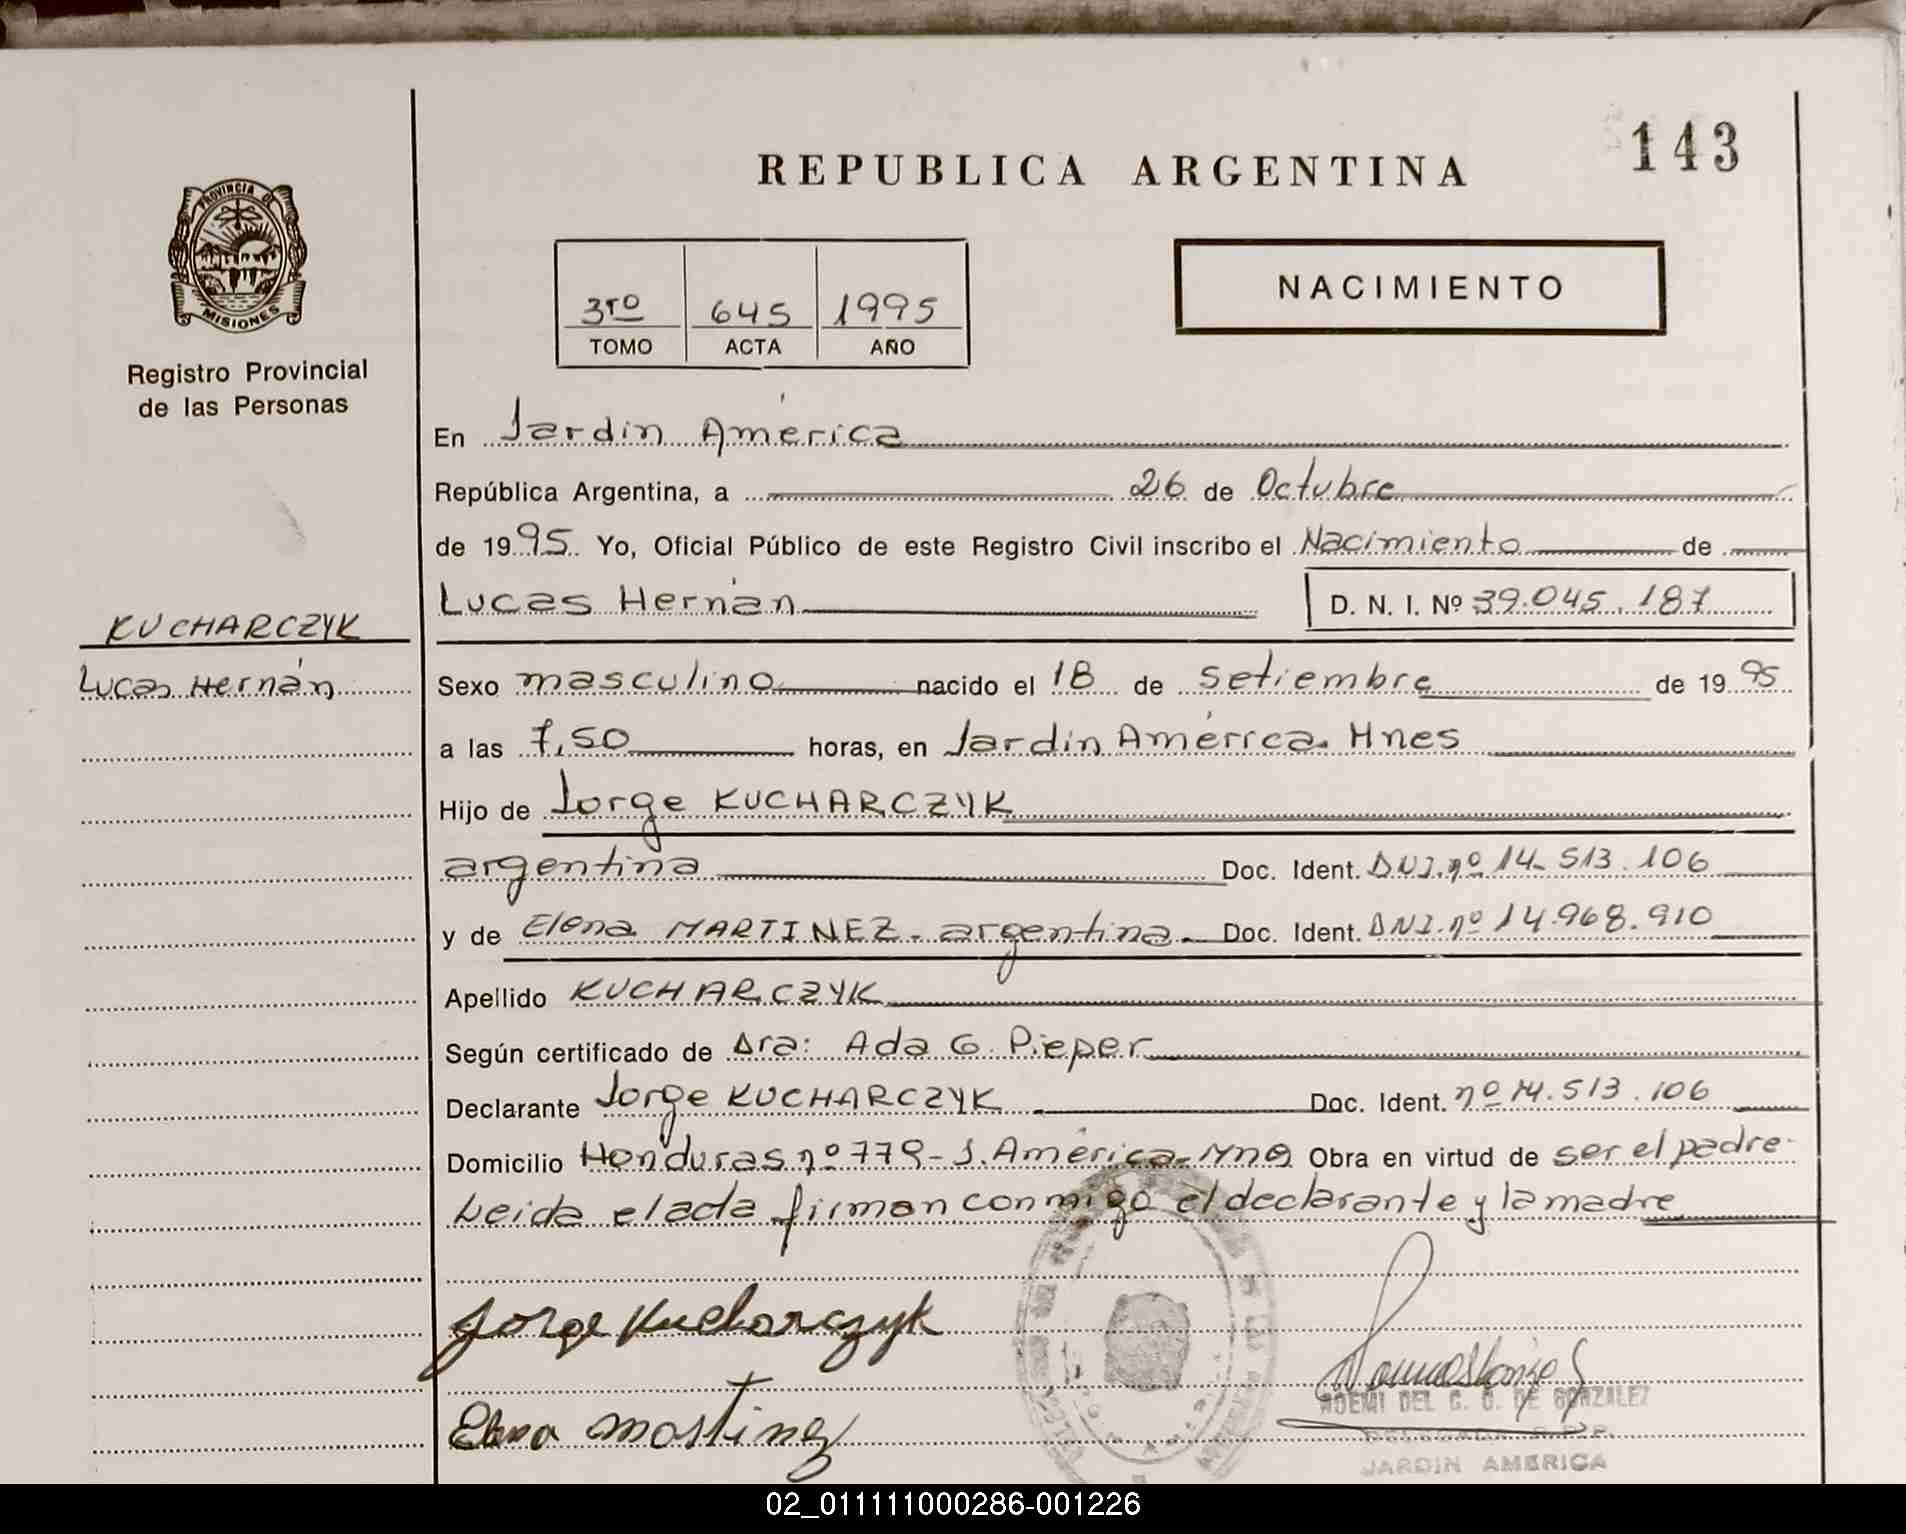 143
REPUBLICA ARGENTINA
PROVINCIA DE
MISIONES
NACIMIENTO
3ro 645 1995
TOMO ACTA AÑO
Registro Provincial
de las Personas
En Jardín América
República Argentina, a 26 de Octubre
de 1995 Yo, Oficial Público de este Registro Civil inscribo el Nacimiento de
Lucas Hernán D. N. I. Nº 39.045.187
KUCHARCZYK
Lucas Hernán
Sexo masculino nacido el 18 de setiembre de 1995
a las 7,50 horas, en Jardín América. Mnes
Hijo de Jorge KUCHARCZYK
argentina Doc. Ident. DNI. nº 14.513.106
y de Elena MARTINEZ - argentina Doc. Ident. DNI. nº 14.968.910
Apellido KUCHARCZYK
Según certificado de Dra: Ada G. Pieper
Declarante Jorge KUCHARCZYK Doc. Ident. nº 14.513.106
Domicilio Honduras nº 779 - J. América - Obra en virtud de ser el padre-
Leida el acta firman conmigo el declarante y la madre
Jorge Kucharczyk
Elena Martinez
NOEMI DEL C. G. DE GONZALEZ
DELEGADA R.P.P.
JARDIN AMERICA
02_011111000286-001226